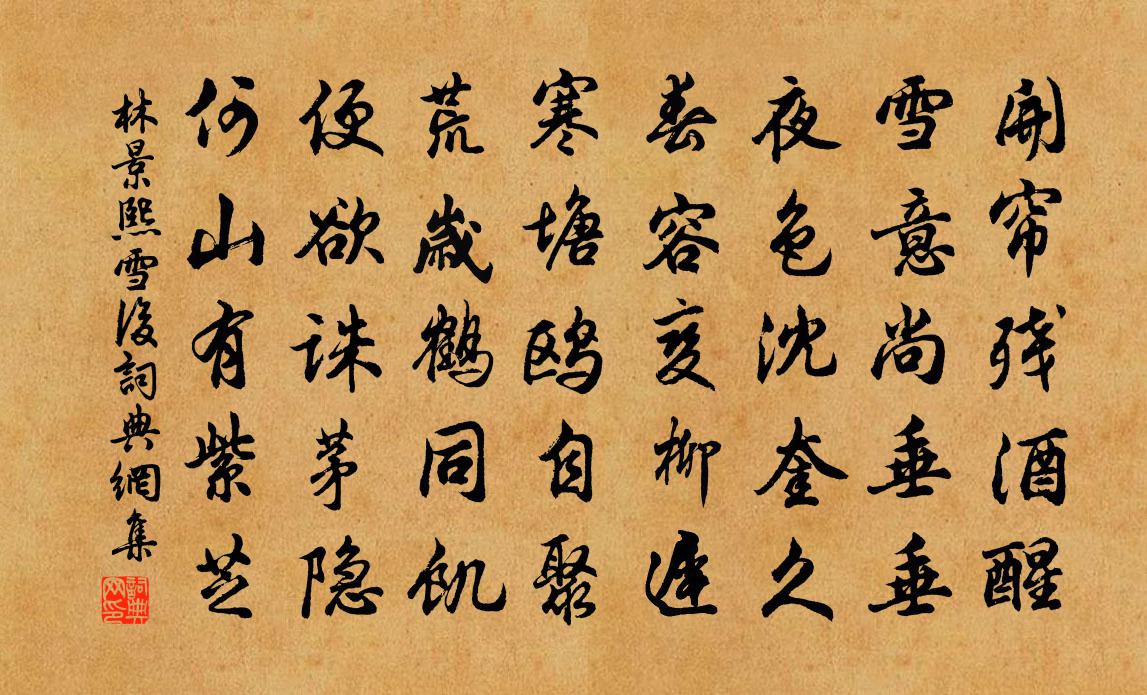 開帘残酒醒
雪意尚垂垂
夜色沈奎久
春容变柳遲
寒塘鸥自聚
荒歲鹤同飢
便欲诛茅隐
何山有紫芝
林景熙雪後詞典網集
詞典网印